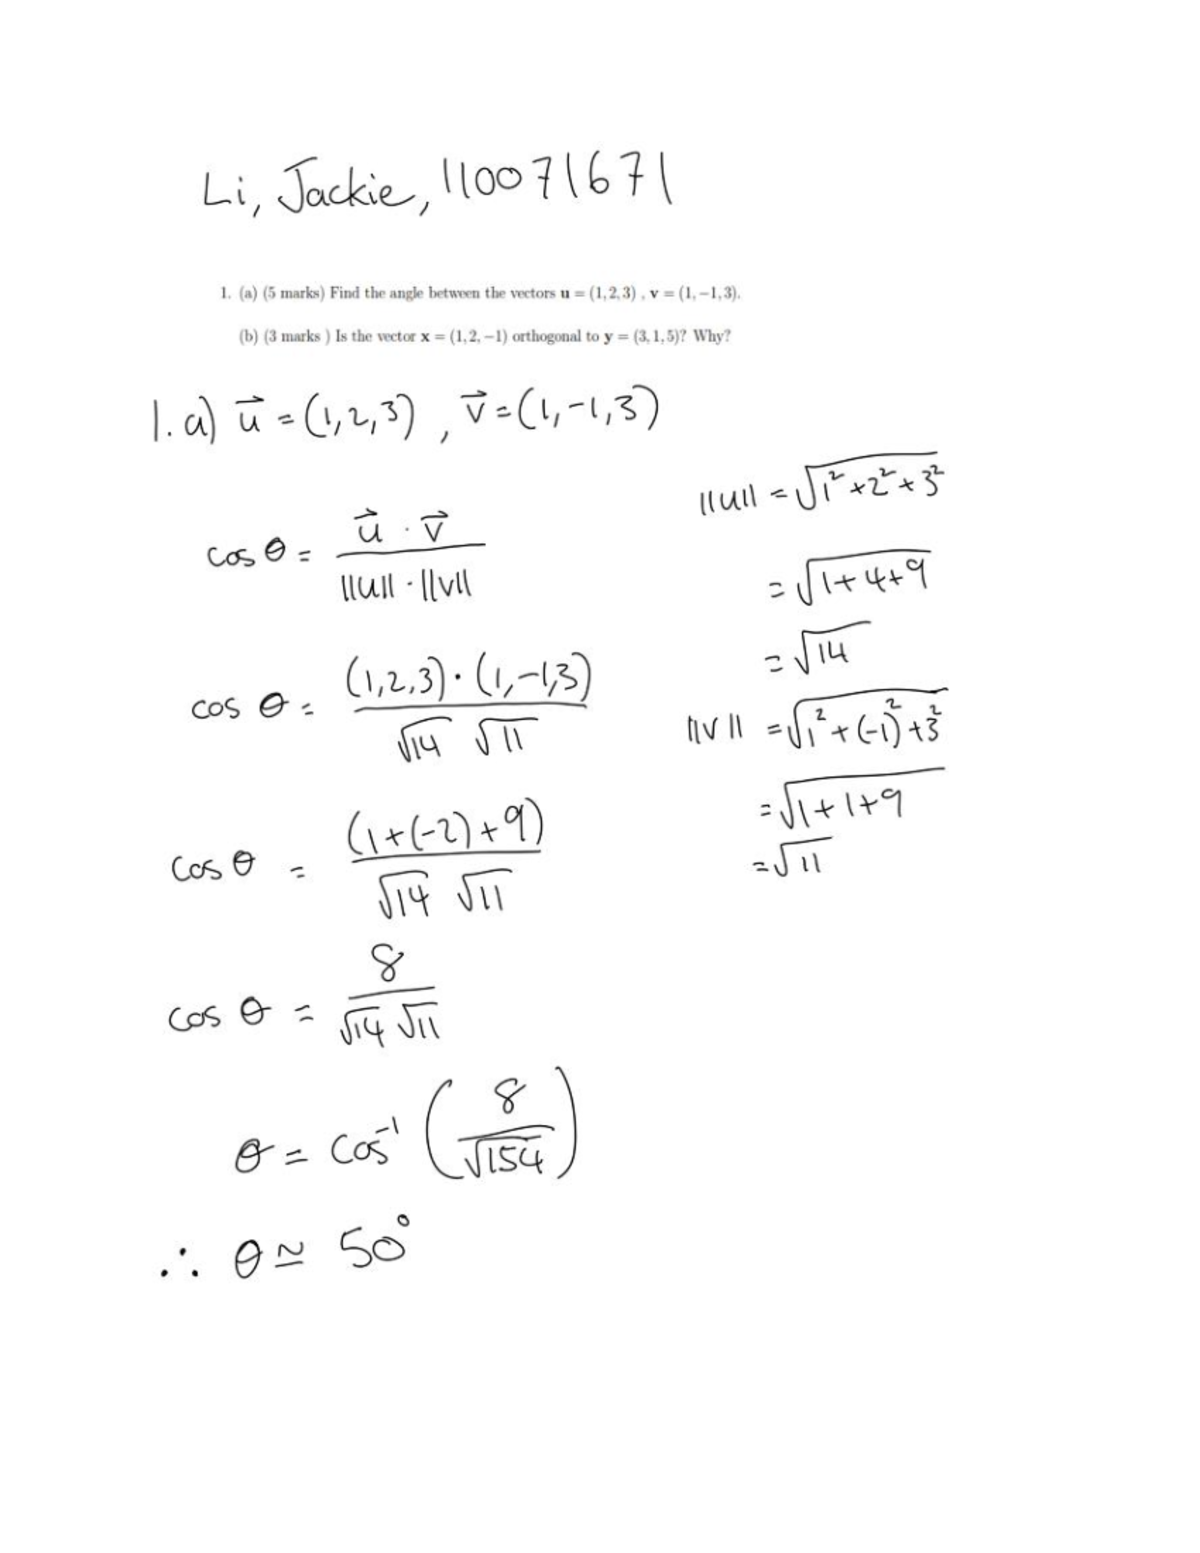 Li, Jackie, 110071671
1. (a) (5 marks) Find the angle between the vectors u = (1, 2, 3) , v = (1, −1, 3).
(b) (3 marks ) Is the vector x = (1, 2, −1) orthogonal to y = (3, 1, 5)? Why?
1. a) u⃗ = (1,2,3) , v⃗ = (1,-1,3)
||u|| = √(1²+2²+3²)
cos θ = (u⃗ · v⃗) / (||u|| · ||v||)
= √(1+4+9)
= √14
cos θ = ((1,2,3) · (1,-1,3)) / (√14 √11)
||v|| = √(1²+(-1)²+3²)
= √(1+1+9)
cos θ = (1+(-2)+9) / (√14 √11)
= √11
cos θ = 8 / (√14 √11)
θ = cos⁻¹ (8 / √154)
∴ θ ≃ 50°